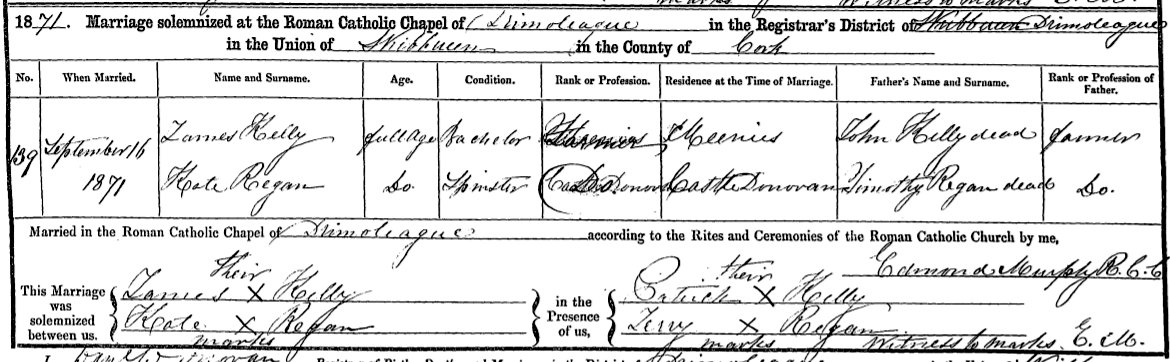 1871. Marriage solemnized at the Roman Catholic Chapel of Drimoleague in the Registrar's District of Skibbereen Drimoleague
in the Union of Skibbereen in the County of Cork
No. When Married. Name and Surname. Age. Condition. Rank or Profession. Residence at the Time of Marriage. Father's Name and Surname. Rank or Profession of Father.
139 September 16 1871 James Kelly full age Bachelor Farmer Meenies John Kelly dead farmer
Kate Regan Do. Spinster Castle Donovan Do. Castle Donovan Timothy Regan dead Do.
Married in the Roman Catholic Chapel of Drimoleague according to the Rites and Ceremonies of the Roman Catholic Church by me,
Edmond Murphy R.C.C
This Marriage was solemnized between us, James X Kelly
Kate X Regan
their marks
in the Presence of us, Patrick X Kelly
Jerry X Regan
their marks
Witness to marks E. M.